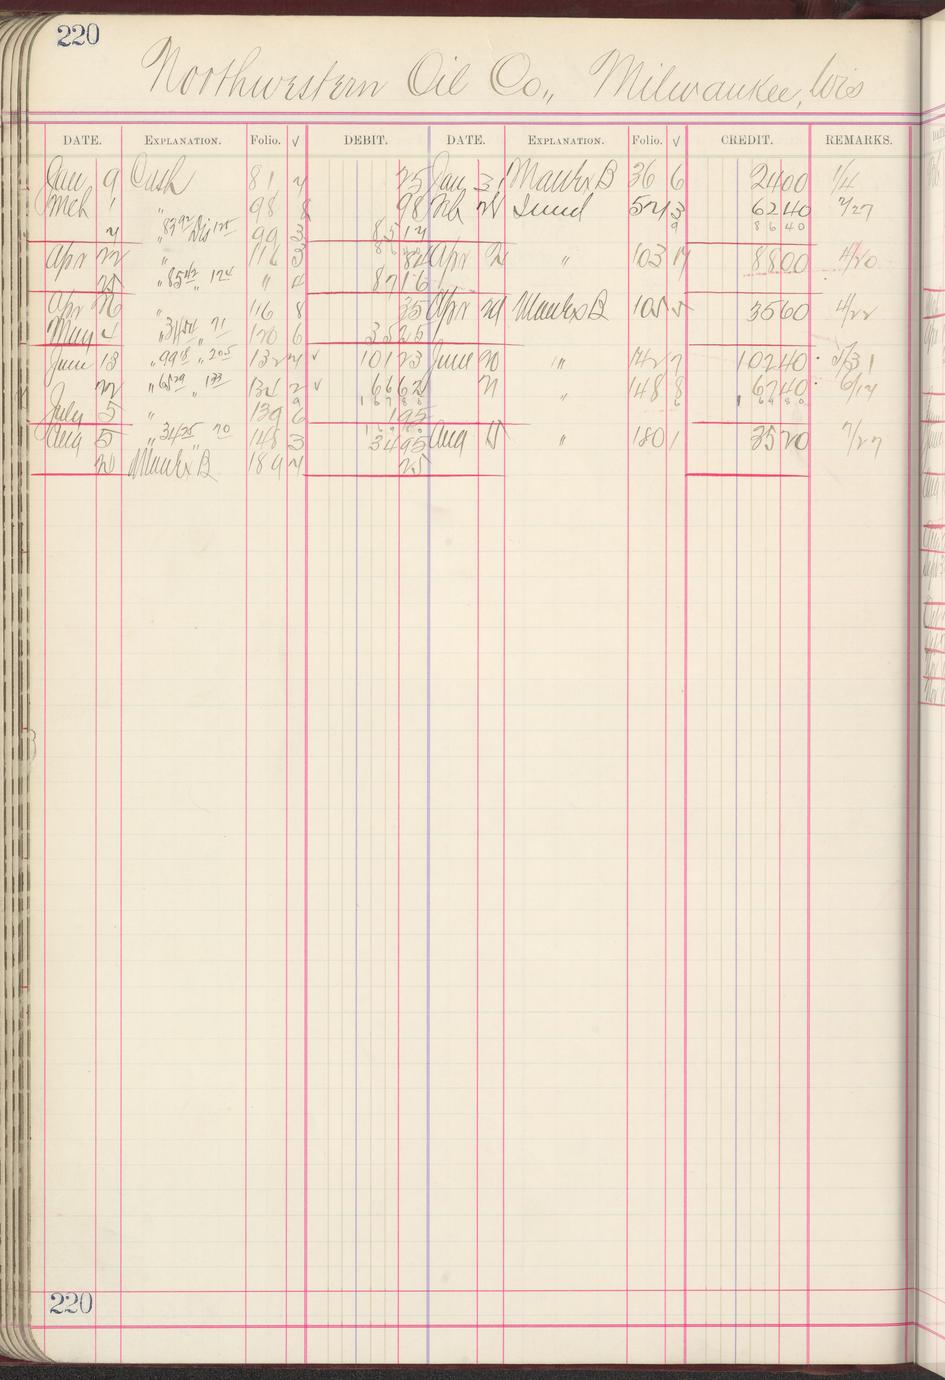 220
Northwestern Oil Co., Milwaukee, Wis
DATE. EXPLANATION. Folio. √ DEBIT. DATE. EXPLANATION. Folio. √ CREDIT. REMARKS.
Jan 9 Cash 81 25 Jan 31 36 6 2400 1/4
Mch 1 " 98 8 98 Sund 3 6240 2/27
" 83 92 Dis 1 25 99 3 85 17 9 8640
Apr " 116 3 84 Apr " 103 8800 4/20
" 85 42 " 1 74 " 4 87 16
Apr 26 " 116 8 35 Apr 105 3560 4/22
May " 71 120 6 35 25
June 13 " 99 18 " 2 05 √ 101 23 June 20 " 142 7 102 40 5/31
" 65 29 " 1 33 134 2 √ 66 62 21 " 148 8 67 40 6/14
July 5 " 139 6 1 95
Aug 5 " 34 25 " 70 148 3 34 95 Aug " 180 1 35 20 7/27
189 25
220